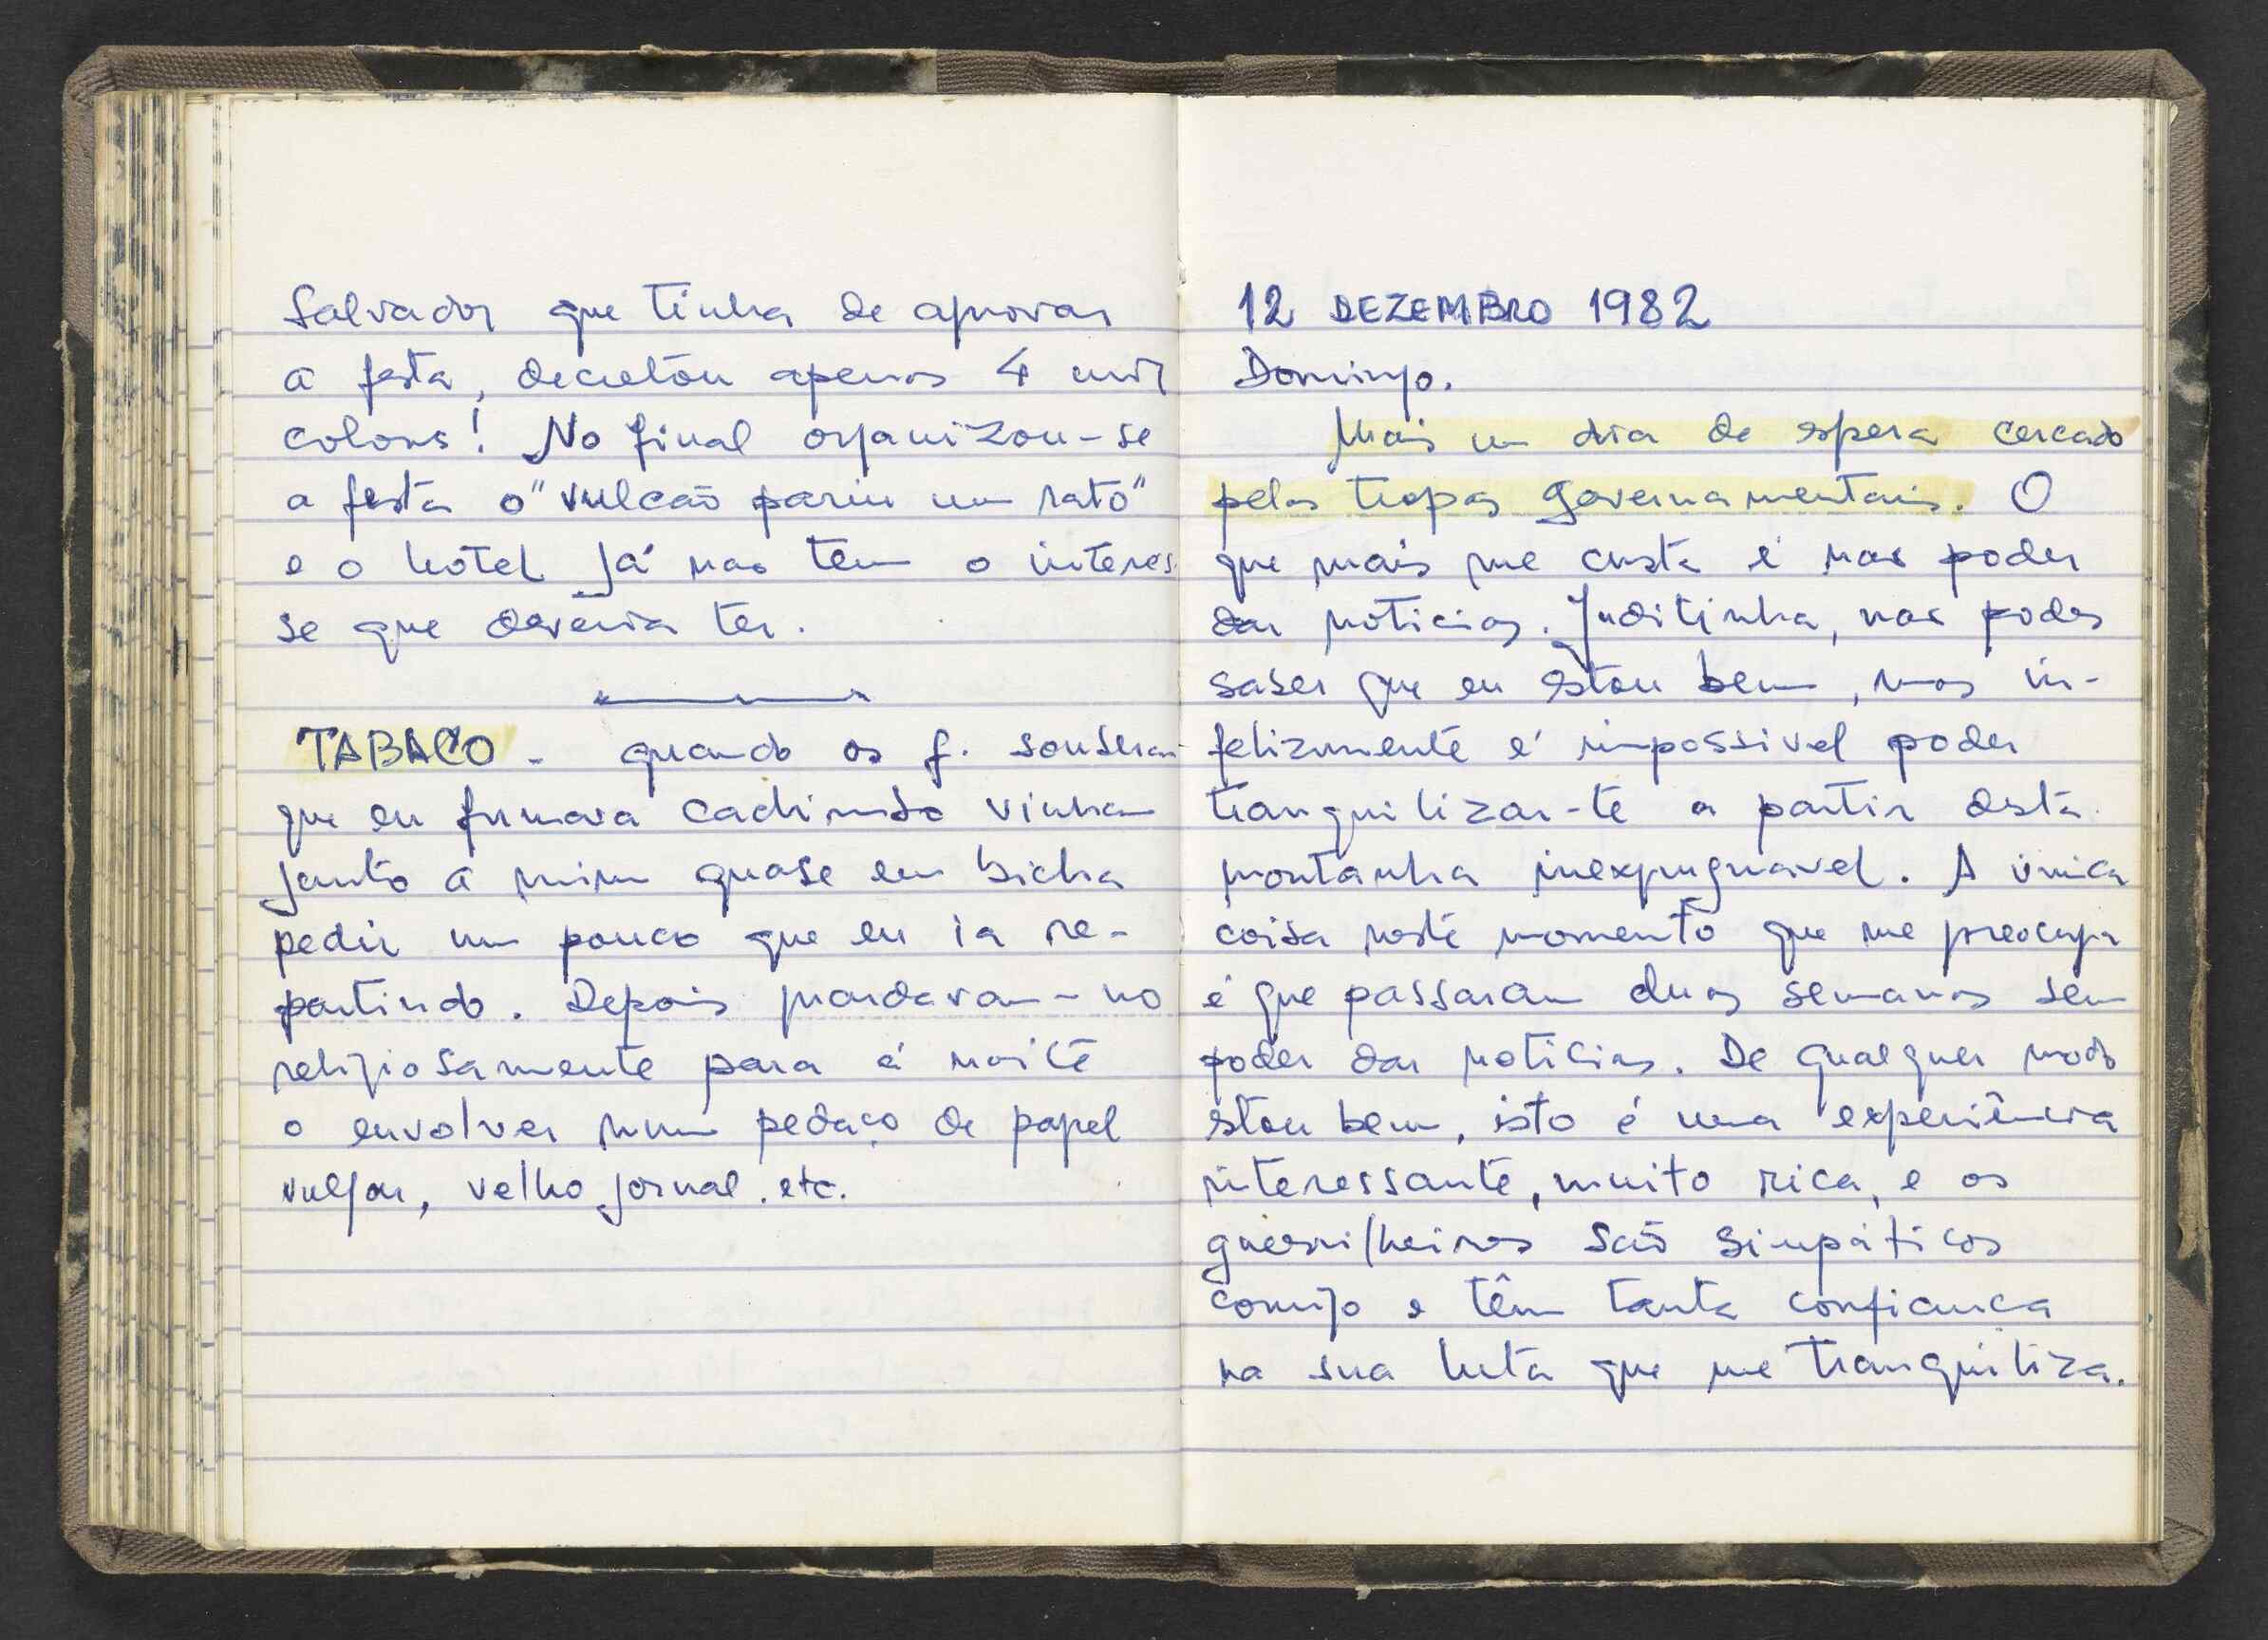 Salvador que tinha de aprovar
a festa, decretou apenas 4 mil
colons! No final organizou-se
a festa o "vulcão pariu um rato"
e o hotel já nao tem o interes
se que deveria ter.
TABACO - quando os g. souberam
que eu fumava cachimbo vinham
junto a mim quase em bicha
pedir um pouco que eu ia re-
partindo. Depois guardavam-no
religiosamente para á noite
o envolver num pedaço de papel
vulgar, velho jornal. etc.
12 DEZEMBRO 1982
Domingo.
Mais um dia de espera cercado
pelas tropas governamentais. O
que mais me custa é nao poder
dar noticias. Juditinha, nao podes
saber que eu estou bem, mas in-
felizmente é impossivel poder
tranquilizar-te a partir desta
montanha inexpugnavel. A única
coisa neste momento que me preocupa
é que passaram duas semanas sem
poder dar noticias. De qualquer modo
estou bem, isto é uma experiência
interessante, muito rica, e os
guerrilheiros são simpáticos
comigo e têm tanta confianca
na sua luta que me tranquiliza.